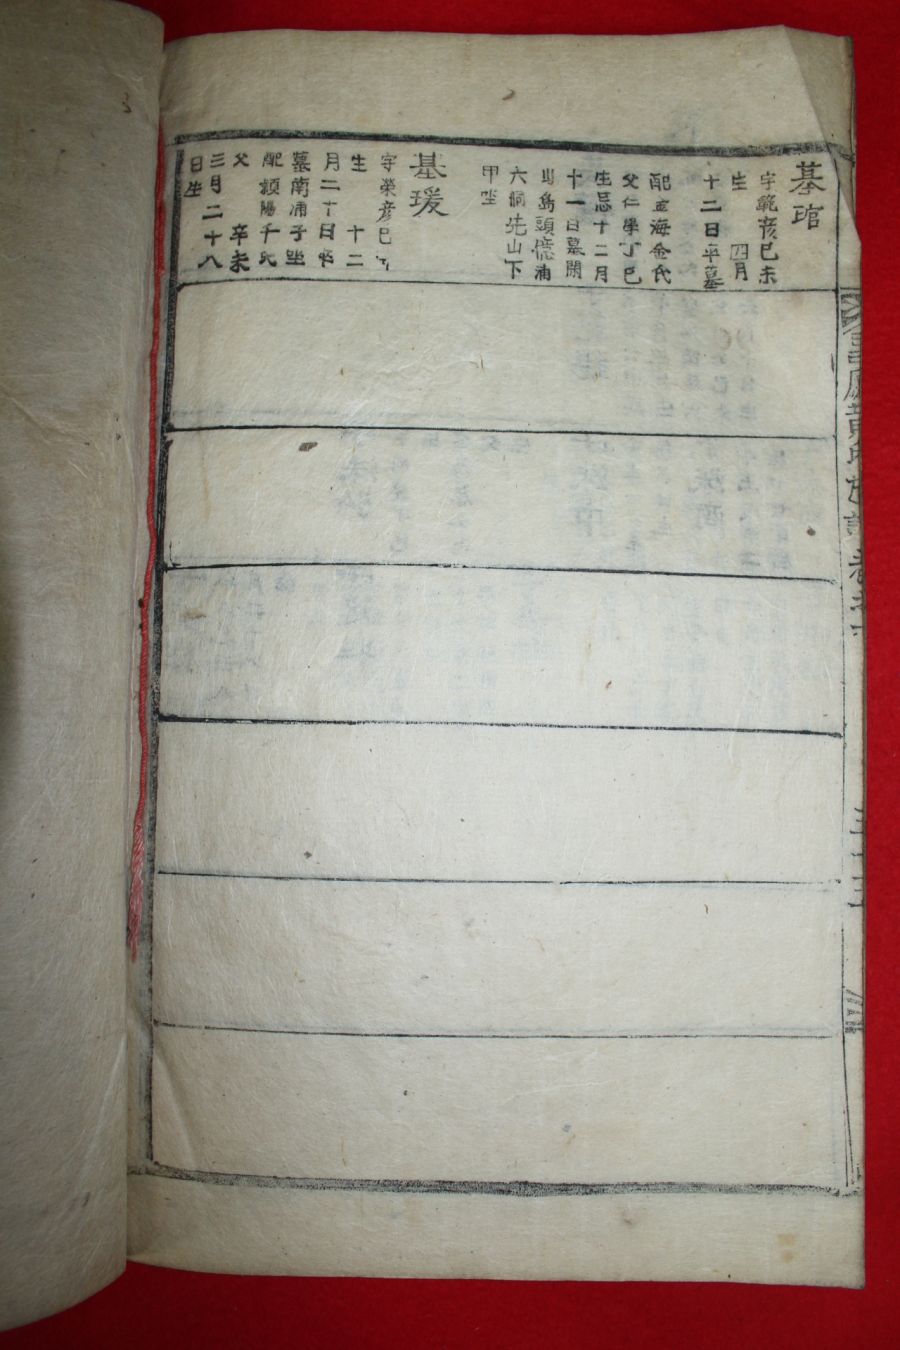 基琯
字範彦己未
生　四月
十二日卒墓
配金海金氏
父仁學丁巳
生忌十二月
十一日墓閑
山島頭億浦
六洞先山下
甲坐
基瑗
字榮彦己
生　十二
月二十日卒
墓南浦子坐
配潁陽千氏
父　辛未
三月二十八
日生
黃氏世譜卷之下